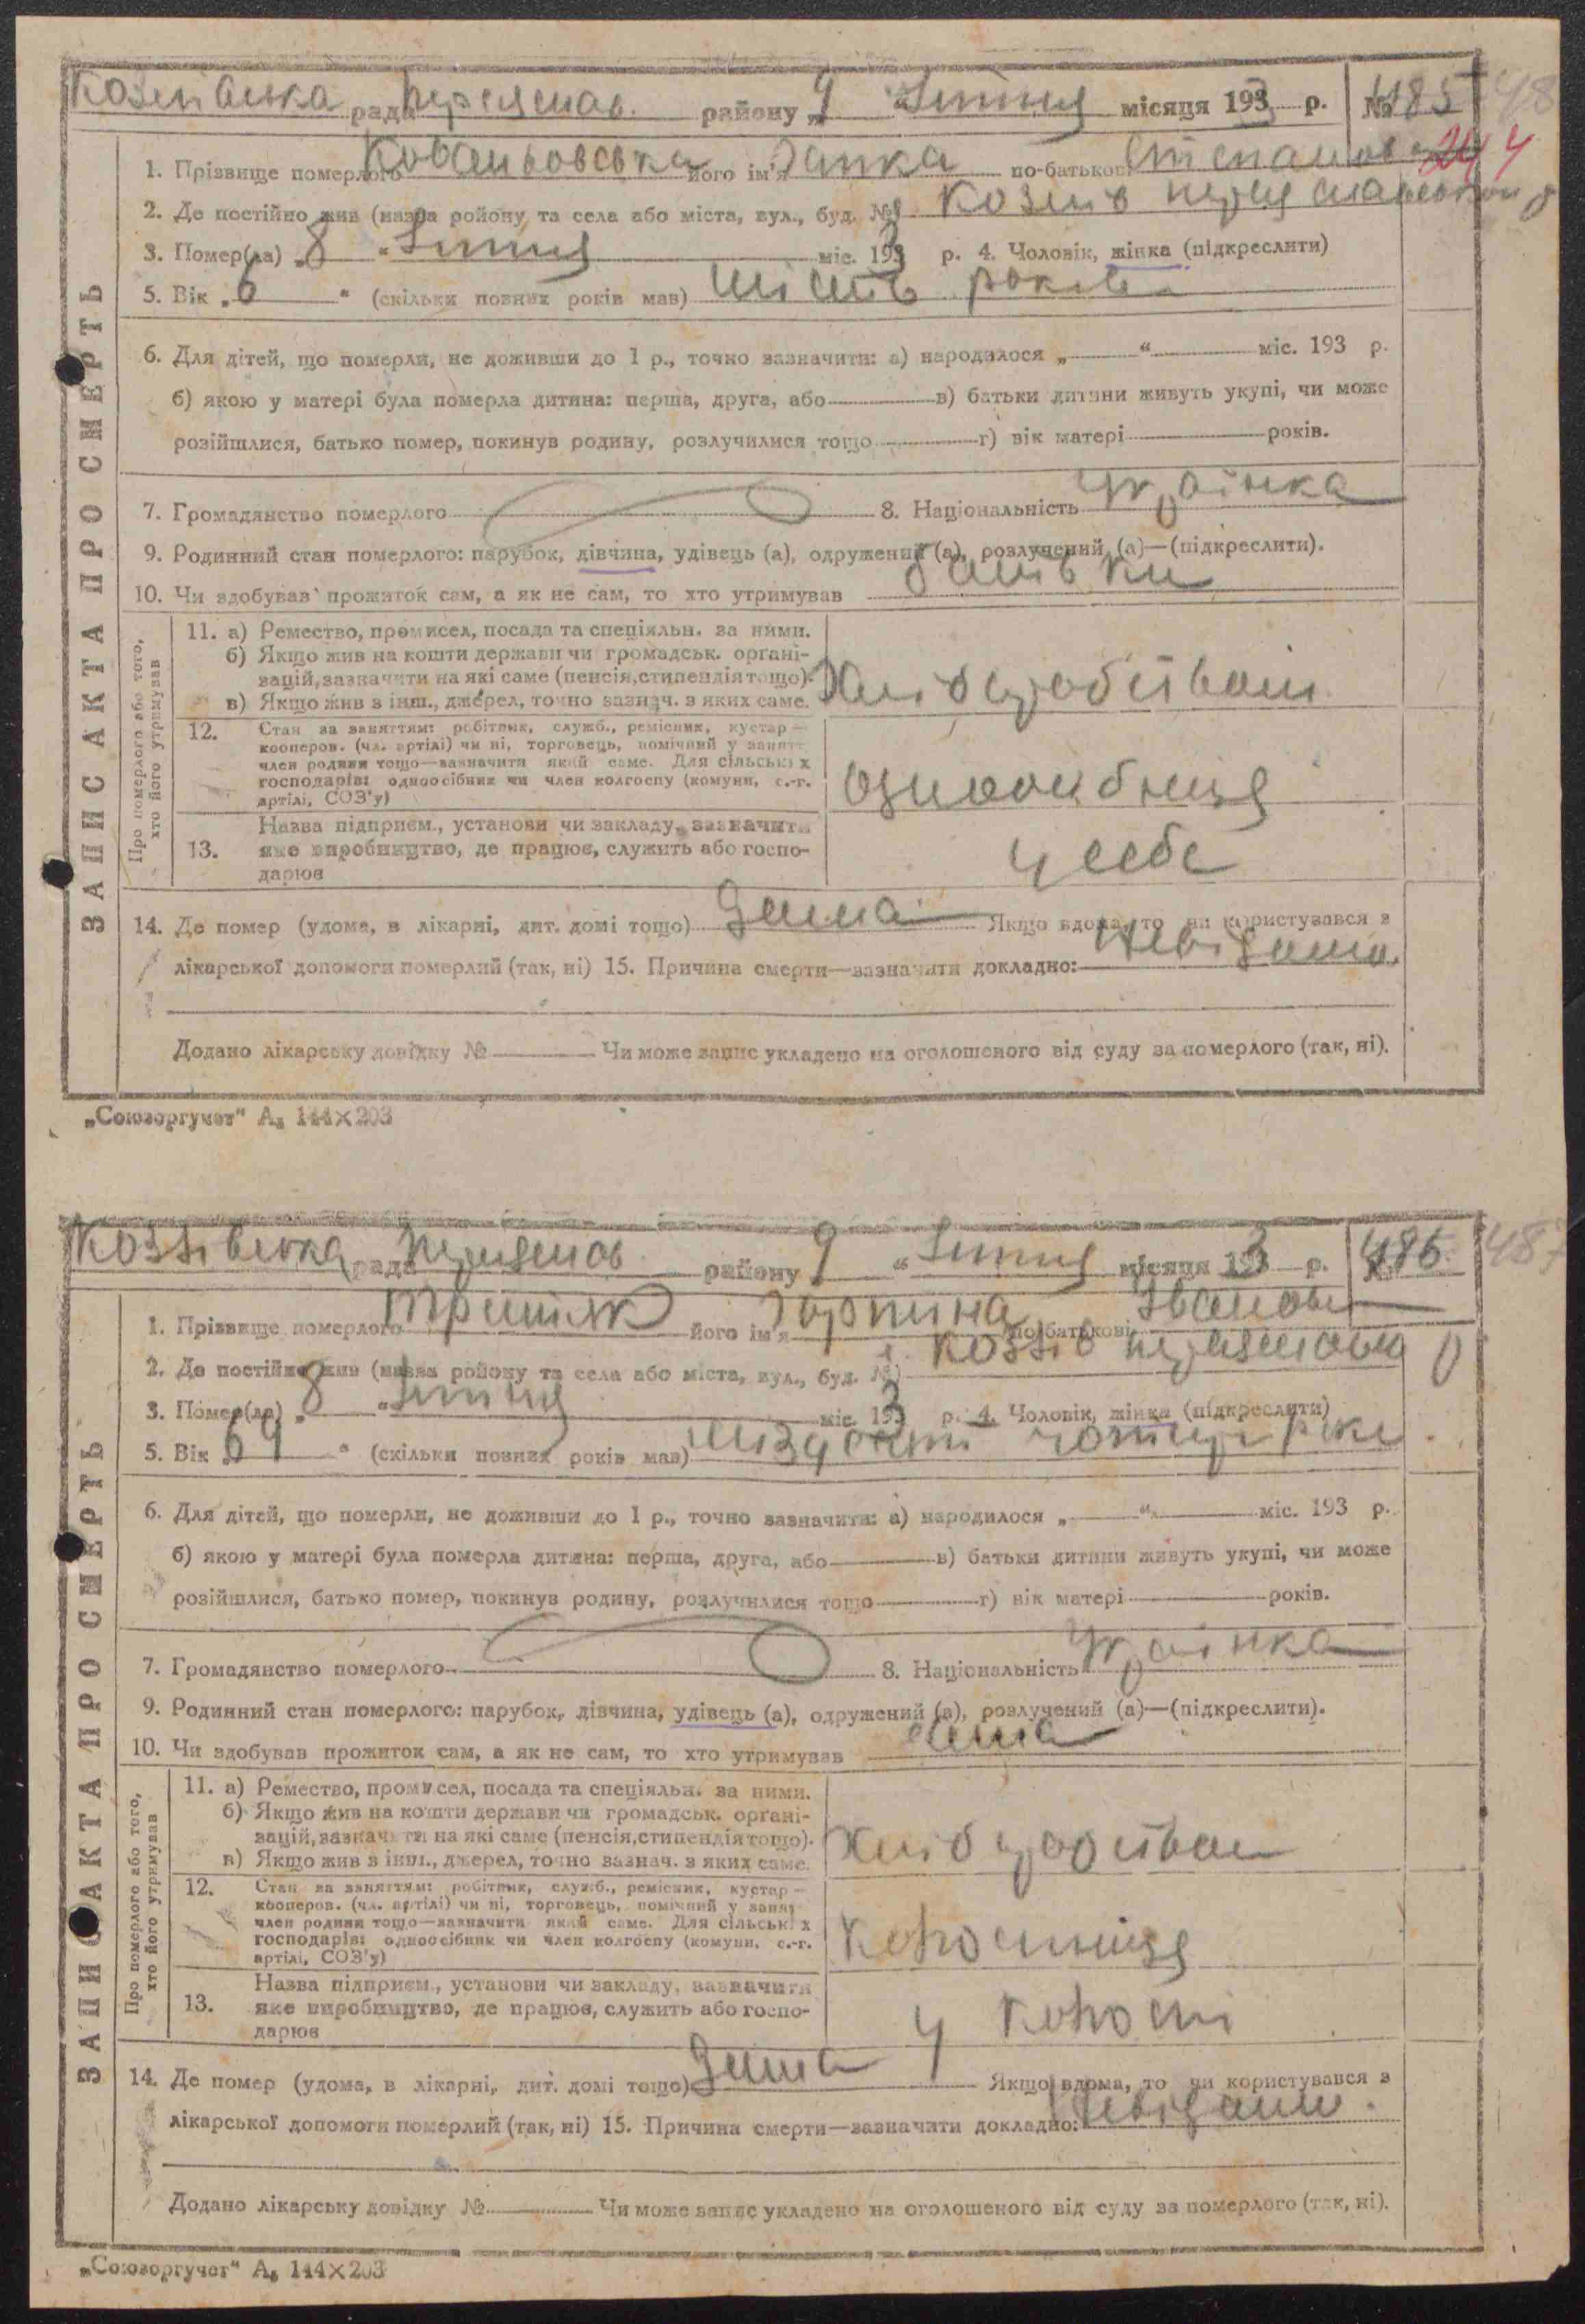 Козлівська рада Переяслав. району „9 “ Липня місяця 1933 р. № 485
1. Прізвище померлого його ім'я по-батькові Степанов
2. Де постійно жив (назва ройону та села або міста, вул., буд. №) Козлів
3. Помер(ла) „8 “ Липня міс. 1933 р. 4. Чоловік, жінка (підкреслити)
5. Вік „6 “ (скільки повних років мав) Шість років
6. Для дітей, що померли, не доживши до 1 р., точно зазначити: а) народилося „ “ міс. 193 р.
б) якою у матері була померла дитина: перша, друга, або в) батьки дитини живуть укупі, чи може
розійшлися, батько помер, покинув родину, розлучилися тощо г) вік матері років.
7. Громадянство померлого 8. Національність Українка
9. Родинний стан померлого: парубок, дівчина, удівець (а), одружений (а), розлучений (а)—(підкреслити).
10. Чи здобував прожиток сам, а як не сам, то хто утримував батьки
ЗАПИС АКТА ПРО СМЕРТЬ
Про померлого або того,
хто його утримував
11. а) Ремество, промисел, посада та спеціяльн. за ними.
б) Якщо жив на кошти держави чи громадськ. орґані-
зацій, зазначити на які саме (пенсія, стипендія тощо).
в) Якщо жив з інш., джерел, точно зазнач. з яких саме.
12. Стан за заняттям: робітник, служб., ремісник, кустар —
кооперов. (чл. артілі) чи ні, торговець, помічний у занятт.
член родини тощо—зазначити який саме. Для сільських
господарів: одноосібник чи член колгоспу (комуни, с.-г.
артілі, СОЗ'у)
одноосібниця
Назва підприєм., установи чи закладу, зазначити
13. яке виробництво, де працює, служить або госпо-
дарює
у себе
14. Де помер (удома, в лікарні, дит. домі тощо) Дома Якщо вдома, то чи користувався з
лікарської допомоги померлий (так, ні) 15. Причина смерти—зазначити докладно: Невідома
Додано лікарську довідку № Чи може запис укладено на оголошеного від суду за померлого (так, ні).
„Союзоргучет“ А₅ 144×203
рада району 9 “ Липня місяця 1933 р. № 486
1. Прізвище померлого його ім'я по-батькові Іванов
2. Де постійно жив (назва ройону та села або міста, вул., буд. №) Козлів
3. Помер(ла) „8 “ Липня міс. 1933 р. 4. Чоловік, жінка (підкреслити)
5. Вік „64 “ (скільки повних років мав)
6. Для дітей, що померли, не доживши до 1 р., точно зазначити: а) народилося „ “ міс. 193 р.
б) якою у матері була померла дитина: перша, друга, або в) батьки дитини живуть укупі, чи може
розійшлися, батько помер, покинув родину, розлучилися тощо г) вік матері років.
7. Громадянство померлого 8. Національність Українка
9. Родинний стан померлого: парубок, дівчина, удівець (а), одружений (а), розлучений (а)—(підкреслити).
10. Чи здобував прожиток сам, а як не сам, то хто утримував сама
ЗАПИС АКТА ПРО СМЕРТЬ
Про померлого або того,
хто його утримував
11. а) Ремество, промисел, посада та спеціяльн. за ними.
б) Якщо жив на кошти держави чи громадськ. орґані-
зацій, зазначити на які саме (пенсія, стипендія тощо).
в) Якщо жив з інш., джерел, точно зазнач. з яких саме.
12. Стан за заняттям: робітник, служб., ремісник, кустар —
кооперов. (чл. артілі) чи ні, торговець, помічний у занят
член родини тощо—зазначити який саме. Для сільських
господарів: одноосібник чи член колгоспу (комуни, с.-г.
артілі, СОЗ'у)
Назва підприєм., установи чи закладу, зазначити
13. яке виробництво, де працює, служить або госпо-
дарює
14. Де помер (удома, в лікарні, дит. домі тощо) Дома Якщо вдома, то чи користувався з
лікарської допомоги померлий (так, ні) 15. Причина смерти—зазначити докладно:
Додано лікарську довідку № Чи може запис укладено на оголошеного від суду за померлого (так, ні).
„Союзоргучет“ А₅ 144×203